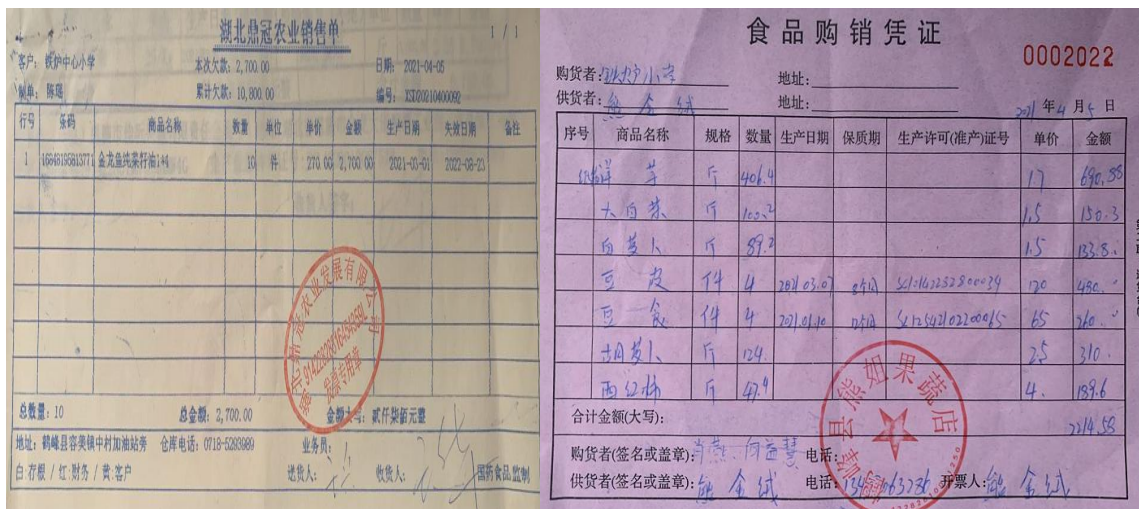 湖北鼎冠农业销售单
1 / 1
客户: 铁炉中心小学 本次欠款: 2,700.00 日期: 2021-04-05
制单: 陈瑶 累计欠款: 10,800.00 编号: XSD20210400092
行号 条码 商品名称 数量 单位 单价 金额 生产日期 失效日期 备注
1 金龙鱼纯菜籽油 10 件 270.00 2,700.00 2021-03-01 2022-08-23
总数量: 10 总金额: 2,700.00 金额大写: 贰仟柒佰元整
地址: 鹤峰县容美镇中村加油站旁 仓库电话: 0718-5283989 业务员:
白:存根 / 红:财务 / 黄:客户 送货人: 收货人: 国药食品监制
食品购销凭证
0002022
购货者: 铁炉小学 地址:
供货者: 熊金绒 地址: 2021 年 4 月 5 日
序号 商品名称 规格 数量 生产日期 保质期 生产许可(准产)证号 单价 金额
洋芋 斤 406.4 1.7 690.88
大白菜 斤 100.2 1.5 150.3
白萝卜 斤 89.2 1.5 133.8
豆皮 件 4 2021.03.07 8个月 120 480.
件 4 2021.01.10 12个月 65 260.
胡萝卜 斤 124. 2.5 310.
西红柿 斤 47.4 4. 189.6
合计金额(大写): 2214.58
购货者(签名或盖章): 肖燕 电话:
供货者(签名或盖章): 熊金绒 电话: 开票人: 熊金绒